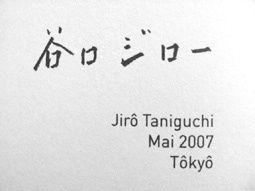 谷口ジロー
Jirô Taniguchi
Mai 2007
Tôkyô